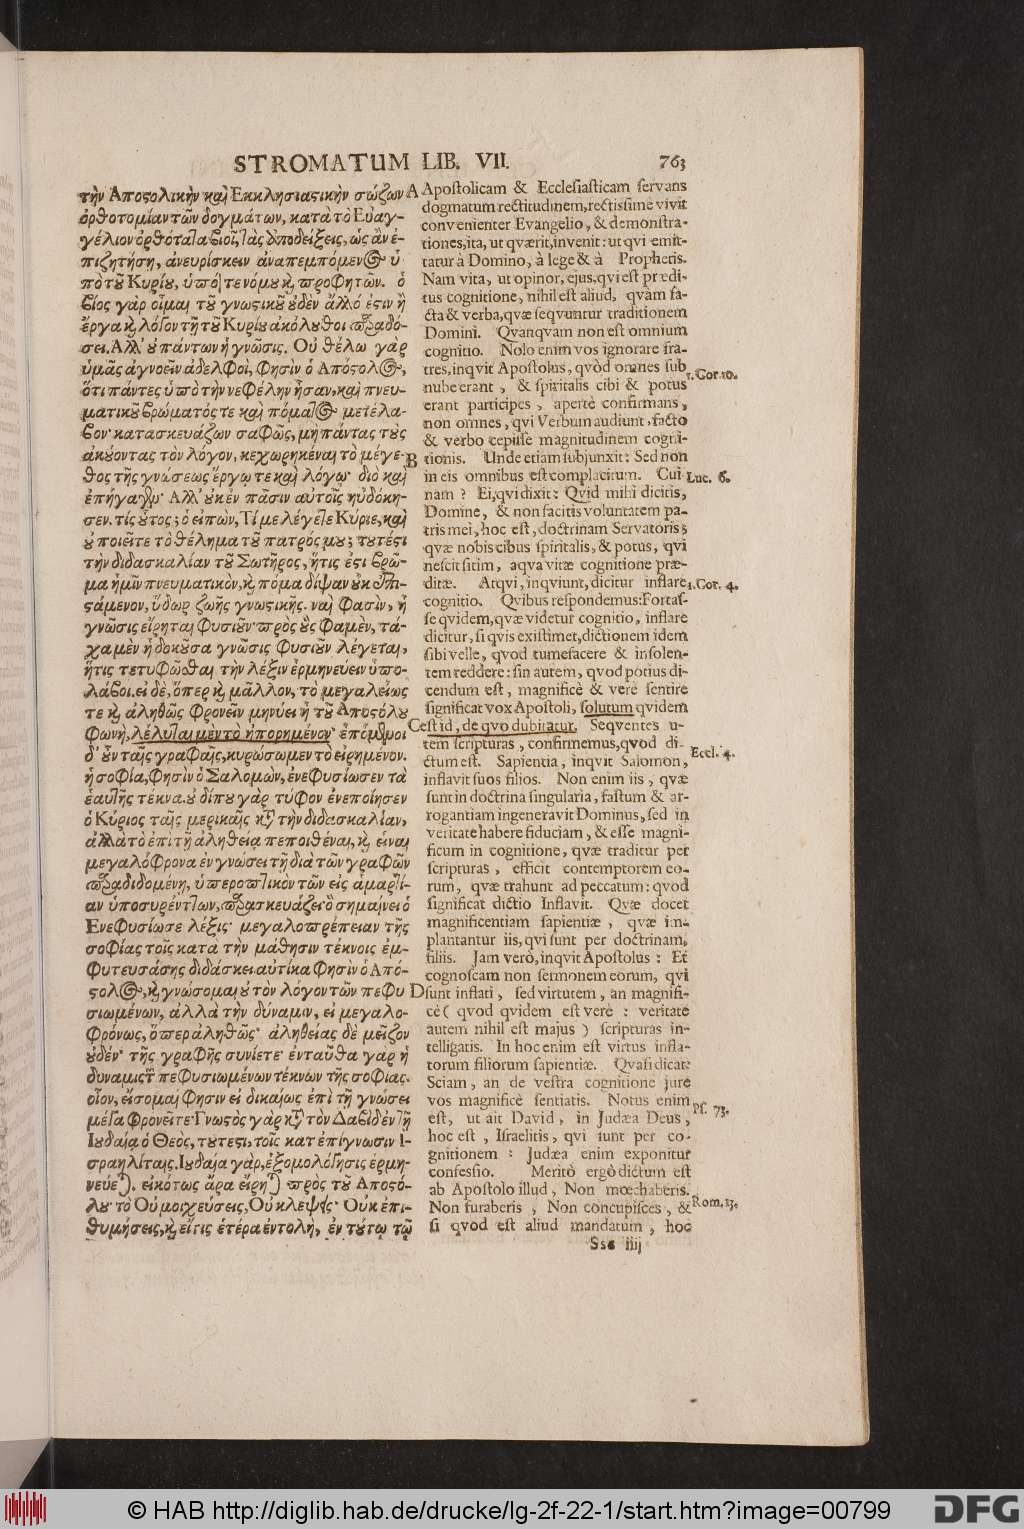 STROMATUM LIB. VII. 763
τὴν Ἀποστολικὴν καὶ Ἐκκλησιαστικὴν σώζων
ὀρθοτομίαν τῶν δογμάτων, κατὰ τὸ Εὐαγ-
γέλιον ὀρθότατα βιοῖ, τὰς ἀποδείξεις, ὡς ἂν ἐ-
πιζητήσῃ, ἀνευρίσκειν ἀναπεμπόμενος ὑ
πὸ τοῦ Κυρίου, ὑπό τε νόμου καὶ προφητῶν. ὁ
βίος γὰρ οἶμαι τοῦ γνωστικοῦ οὐδὲν ἄλλό ἐστιν ἢ
ἔργα καὶ λόγοι τῇ τοῦ Κυρίου ἀκόλουθοι παραδό-
σει. Ἀλλ' οὐ πάντων ἡ γνῶσις. Οὐ θέλω γὰρ
ὑμᾶς ἀγνοεῖν ἀδελφοὶ, φησὶν ὁ Ἀπόστολος,
ὅτι πάντες ὑπὸ τὴν νεφέλην ἦσαν, καὶ πνευ-
ματικοῦ βρώματός τε καὶ πόματος μετέλα-
βον· κατασκευάζων σαφῶς, μὴ πάντας τοὺς
ἀκούοντας τὸν λόγον, κεχωρηκέναι τὸ μέγε-
θος τῆς γνώσεως ἔργῳ τε καὶ λόγῳ· διὸ καὶ
ἐπήγαγεν· Ἀλλ' οὐκ ἐν πᾶσιν αὐτοῖς ηὐδόκη-
σεν. τίς οὗτος; ὁ εἰπὼν, Τί με λέγετε Κύριε, καὶ
οὐ ποιεῖτε τὸ θέλημα τοῦ πατρός μου; τουτέστι
τὴν διδασκαλίαν τοῦ Σωτῆρος, ἥτις ἐστι βρῶ-
μα ἡμῖν πνευματικὸν, καὶ πόμα δίψαν οὐκ ἐπι-
στάμενον, ὕδωρ ζωῆς γνωστικῆς. ναὶ φασὶν, ἡ
γνῶσις εἴρηται φυσιοῦν· πρὸς οὓς φαμὲν, τά-
χα μὲν ἡ δοκοῦσα γνῶσις φυσιοῦν λέγεται,
ἥτις τετυφῶσθαι τὴν λέξιν ἑρμηνεύειν ὑπο-
λάβοι. εἰ δὲ, ὅπερ καὶ μᾶλλον, τὸ μεγαλείως
τε καὶ ἀληθῶς φρονεῖν μηνύει ἡ τοῦ Ἀποστόλου
φωνὴ, λέλυται μὲν τὸ ἠπορημένον· ἑπόμενοι
δ' οὖν ταῖς γραφαῖς, κυρώσωμεν τὸ εἰρημένον.
ἡ σοφία, φησὶν ὁ Σαλομὼν, ἐνεφυσίωσεν τὰ
ἑαυτῆς τέκνα. οὐ δίπου γὰρ τύφον ἐνεποίησεν
ὁ Κύριος ταῖς μερικαῖς κατὰ τὴν διδασκαλίαν,
ἀλλὰ τὸ ἐπὶ τῇ ἀληθείᾳ πεποιθέναι, καὶ εἶναι
μεγαλόφρονα ἐν γνώσει τῇ διὰ τῶν γραφῶν
παραδιδομένῃ, ὑπεροπτικὸν τῶν εἰς ἁμαρτί-
αν ὑποσυρέντων, παρασκευάζει· ὃ σημαίνει ὁ
Ἐνεφυσίωσε λέξις· μεγαλοπρέπειαν τῆς
σοφίας τοῖς κατὰ τὴν μάθησιν τέκνοις ἐμ-
φυτευσάσης διδάσκει αὐτίκα φησὶν ὁ Ἀπό-
στολος, καὶ γνώσομαι οὐ τὸν λόγον τῶν πεφυ
σιωμένων, ἀλλὰ τὴν δύναμιν, εἰ μεγαλο-
φρόνως, ὅπερ ἀληθῶς· ἀληθείας δὲ μεῖζον
οὐδέν· τῆς γραφῆς συνίετε· ἐνταῦθα γὰρ ἡ
δυναμις τῶν πεφυσιωμένων τέκνων τῆς σοφίας.
οἷον, εἴσομαι φησιν εἰ δικαίως ἐπὶ τῇ γνώσει
μέγα φρονεῖτε· Γνωστὸς γὰρ κατὰ τὸν Δαβὶδ ἐν τῇ
Ἰουδαίᾳ ὁ Θεὸς, τουτέστι, τοῖς κατ' ἐπίγνωσιν Ἰ-
σραηλίταις. Ἰουδαία γὰρ, ἐξομολόγησις ἑρμη-
νεύεται. εἰκότως ἄρα εἴρηται πρὸς τοῦ Ἀποστό-
λου· τὸ Οὐ μοιχεύσεις, Οὐ κλέψεις· Οὐκ ἐπι-
θυμήσεις, καὶ εἴ τις ἑτέρα ἐντολὴ, ἐν τούτῳ τῷ
A
B
C
D
Apostolicam & Ecclesiasticam servans
dogmatum rectitudinem, rectissime vivit
convenienter Evangelio, & demonstra-
tiones, ita, ut qværit, invenit: ut qui emit-
tatur à Domino, à lege & à Prophetis.
Nam vita, ut opinor, ejus, qvi est prædi-
tus cognitione, nihil est aliud, qvàm fa-
cta & verba, qvæ seqvuntur traditionem
Domini. Qvanqvam non est omnium
cognitio. Nolo enim vos ignorare fra-
tres, inqvit Apostolus, qvòd omnes sub
nube erant, & spiritalis cibi & potus
erant participes, apertè confirmans,
non omnes, qvi Verbum audiunt, facto
& verbo cepisse magnitudinem cogni-
tionis. Unde etiam subjunxit: Sed non
in eis omnibus est complacitum. Cui-
nam? Ei, qvi dixit: Qvid mihi dicitis,
Domine, & non facitis voluntatem pa-
tris mei, hoc est, doctrinam Servatoris;
qvæ nobis cibus spiritalis, & potus, qvi
nescit sitim, aqva vitæ cognitione præ-
ditæ. Atqvi, inqviunt, dicitur inflare
cognitio. Qvibus respondemus: Fortas-
se qvidem, qvæ videtur cognitio, inflare
dicitur, si qvis existimet, dictionem idem
sibi velle, qvod tumefacere & insolen-
tem reddere: sin autem, qvod potius di-
cendum est, magnificè & verè sentire
significat vox Apostoli, solutum qvidem
est id, de qvo dubitatur. Seqventes u-
tem scripturas, confirmemus, qvod di-
ctum est. Sapientia, inqvit Salomon,
inflavit suos filios. Non enim iis, qvæ
sunt in doctrina singularia, fastum & ar-
rogantiam ingeneravit Dominus, sed in
veritate habere fiduciam, & esse magni-
ficum in cognitione, qvæ traditur per
scripturas, efficit contemptorem eo-
rum, qvæ trahunt ad peccatum: qvod
significat dictio Inflavit. Qvæ docet
magnificentiam sapientiæ, qvæ im-
plantantur iis, qvi sunt per doctrinam,
filiis. Jam verò, inqvit Apostolus: Et
cognoscam non sermonem eorum, qvi
sunt inflati, sed virtutem, an magnifi-
cè (qvod qvidem est verè: veritate
autem nihil est majus) scripturas in-
telligatis. In hoc enim est virtus infla-
torum filiorum sapientiæ. Qvasi dicat:
Sciam, an de vestra cognitione jure
vos magnificè sentiatis. Notus enim
est, ut ait David, in Judæa Deus,
hoc est, Israelitis, qvi sunt per co-
gnitionem: Judæa enim exponitur
confessio. Meritò ergò dictum est
ab Apostolo illud, Non mœchaberis.
Non furaberis, Non concupisces, &
si qvod est aliud mandatum, hoc
1. Cor. 10.
Luc. 6.
1. Cor. 4.
Eccl. 4.
Ps. 73.
Rom. 13.
Sss iiij
© HAB http://diglib.hab.de/drucke/lg-2f-22-1/start.htm?image=00799
DFG